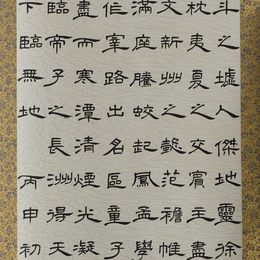 斗之墟人傑地靈徐
枕夷夏之交賓主盡
文新州之懿范襜帷
滿座騰蛟起鳳孟學
作宰路出名區童子
盡而寒潭清煙光凝
臨帝子之長洲得天
下臨無地 丙申初